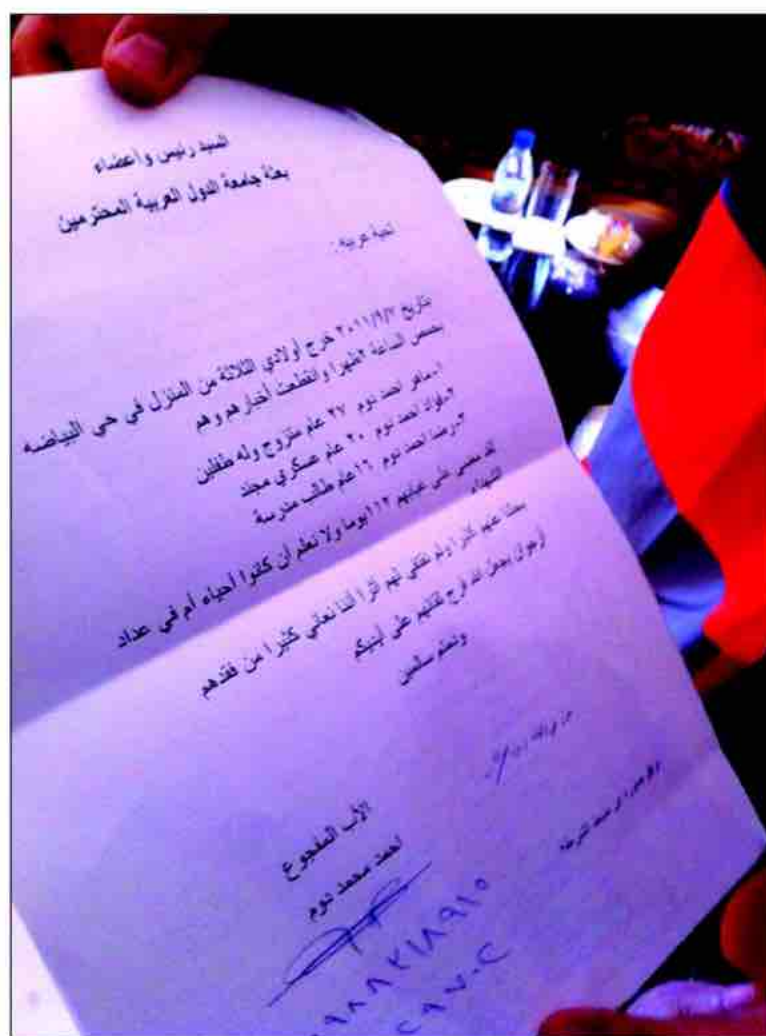 السيد رئيس وأعضاء
بعثة جامعة الدول العربية المحترمين
تحية عربية :
بتاريخ ٢٠١١/٩/٧ خرج أولادي الثلاثة من المنزل في حي البياضه
بحمص الساعة ٢ظهرا وانقطعت أخبارهم وهم
١-ماهر احمد دوم ٢٧ عام متزوج وله طفلين
٢-فؤاد احمد دوم ٢٠ عام عسكري مجند
٣-رضا احمد دوم ١٦عام طالب مدرسة
لقد مضى على غيابهم ١١٢يوما ولا نعلم أن كانوا أحياء أم في عداد
الشهداء
بحثنا عنهم كثيرا ولم نلتقي لهم أثرا أننا نعاني كثيرا من فقدهم
أرجوان يجعل الله فرج لقائهم على أيديكم
ودمتم سالمين
الأب المفجوع
احمد محمد دوم